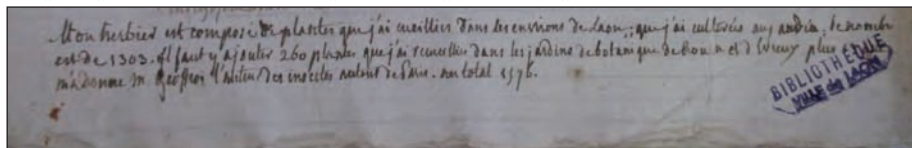 Mon herbier est composé de plantes que j'ai cueillies dans les environs de Laon, que j'ai cultivées au jardin. le nombre
est de 1303. il faut y ajouter 260 plantes que j'ai recueillies dans les jardins de botanique de et d'Evreux plus
m'a donné m. Geoffroi l'auteur des insectes autour de Paris. au total 1576.
BIBLIOTHÈQUE
VILLE de LAON